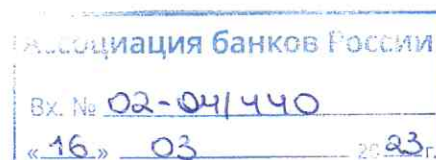 Ассоциация банков России
Вх. № 02-04/440
«16» 03 2023г.